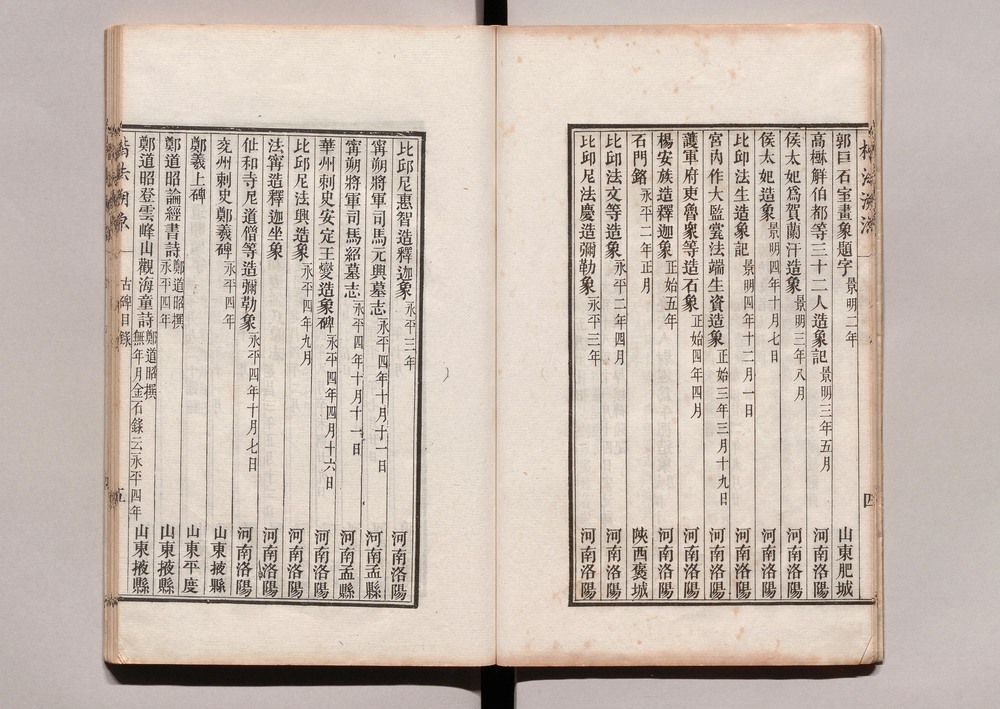 郭巨石室畫象題字 景明二年 山東肥城
高樹解伯都等三十二人造象記 景明三年五月 河南洛陽
侯太妃爲賀蘭汗造象 景明三年八月 河南洛陽
侯太妃造象 景明四年十月七日 河南洛陽
比邱法生造象記 景明四年十二月一日 河南洛陽
宮內作大監瓽法端生資造象 正始三年三月十九日 河南洛陽
護軍府吏魯衆等造石象 正始四年四月 河南洛陽
楊安族造釋迦象 正始五年 河南洛陽
石門銘 永平二年正月 陝西褒城
比邱法文等造象 永平二年四月 河南洛陽
比邱尼法慶造彌勒象 永平三年 河南洛陽
四
比邱尼惠智造釋迦象 永平三年 河南洛陽
甯朔將軍司馬元興墓志 永平四年十月十一日 河南孟縣
甯朔將軍司馬紹墓志 永平四年十月十一日 河南孟縣
華州刺史安定王燮造象碑 永平四年四月十六日 河南洛陽
比邱尼法興造象 永平四年九月 河南洛陽
法甯造釋迦坐象 河南洛陽
仙和寺尼道僧等造彌勒象 永平四年十月七日 河南洛陽
兗州刺史鄭羲碑 永平四年 山東掖縣
鄭羲上碑 山東平度
鄭道昭論經書詩 鄭道昭撰 永平四年 山東掖縣
鄭道昭登雲峰山觀海童詩 鄭道昭撰 無年月金石錄云永平四年 山東掖縣
古碑目錄
五